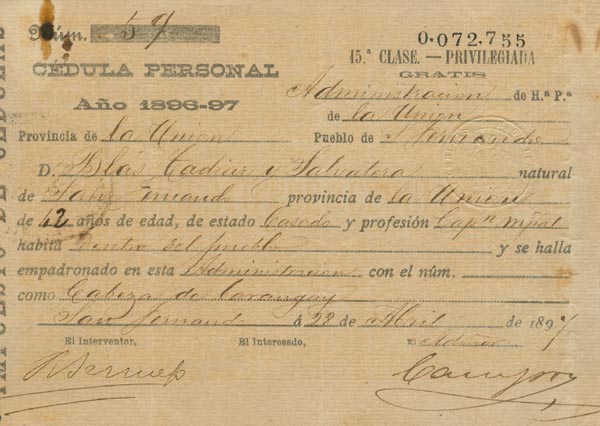 Núm. 59
0.072.755
15.ª CLASE. — PRIVILEGIADA
GRATIS
CÉDULA PERSONAL
Año 1896-97
Administracion de H.ª P.ª
de la Union
Provincia de la Union Pueblo de S. Fernando
D. Blas Tadiar y Salvatera natural
de San Fernando provincia de la Union
de 42 años de edad, de estado Casado y profesión Cap.n mpal
habita dentro del pueblo y se halla
empadronado en esta Administracion con el núm.
como Cabeza de barangay
San Fernando á 22 de Abril de 1897
El Interventor, El Interesado, El
IMPUESTO DE CÉDULAS